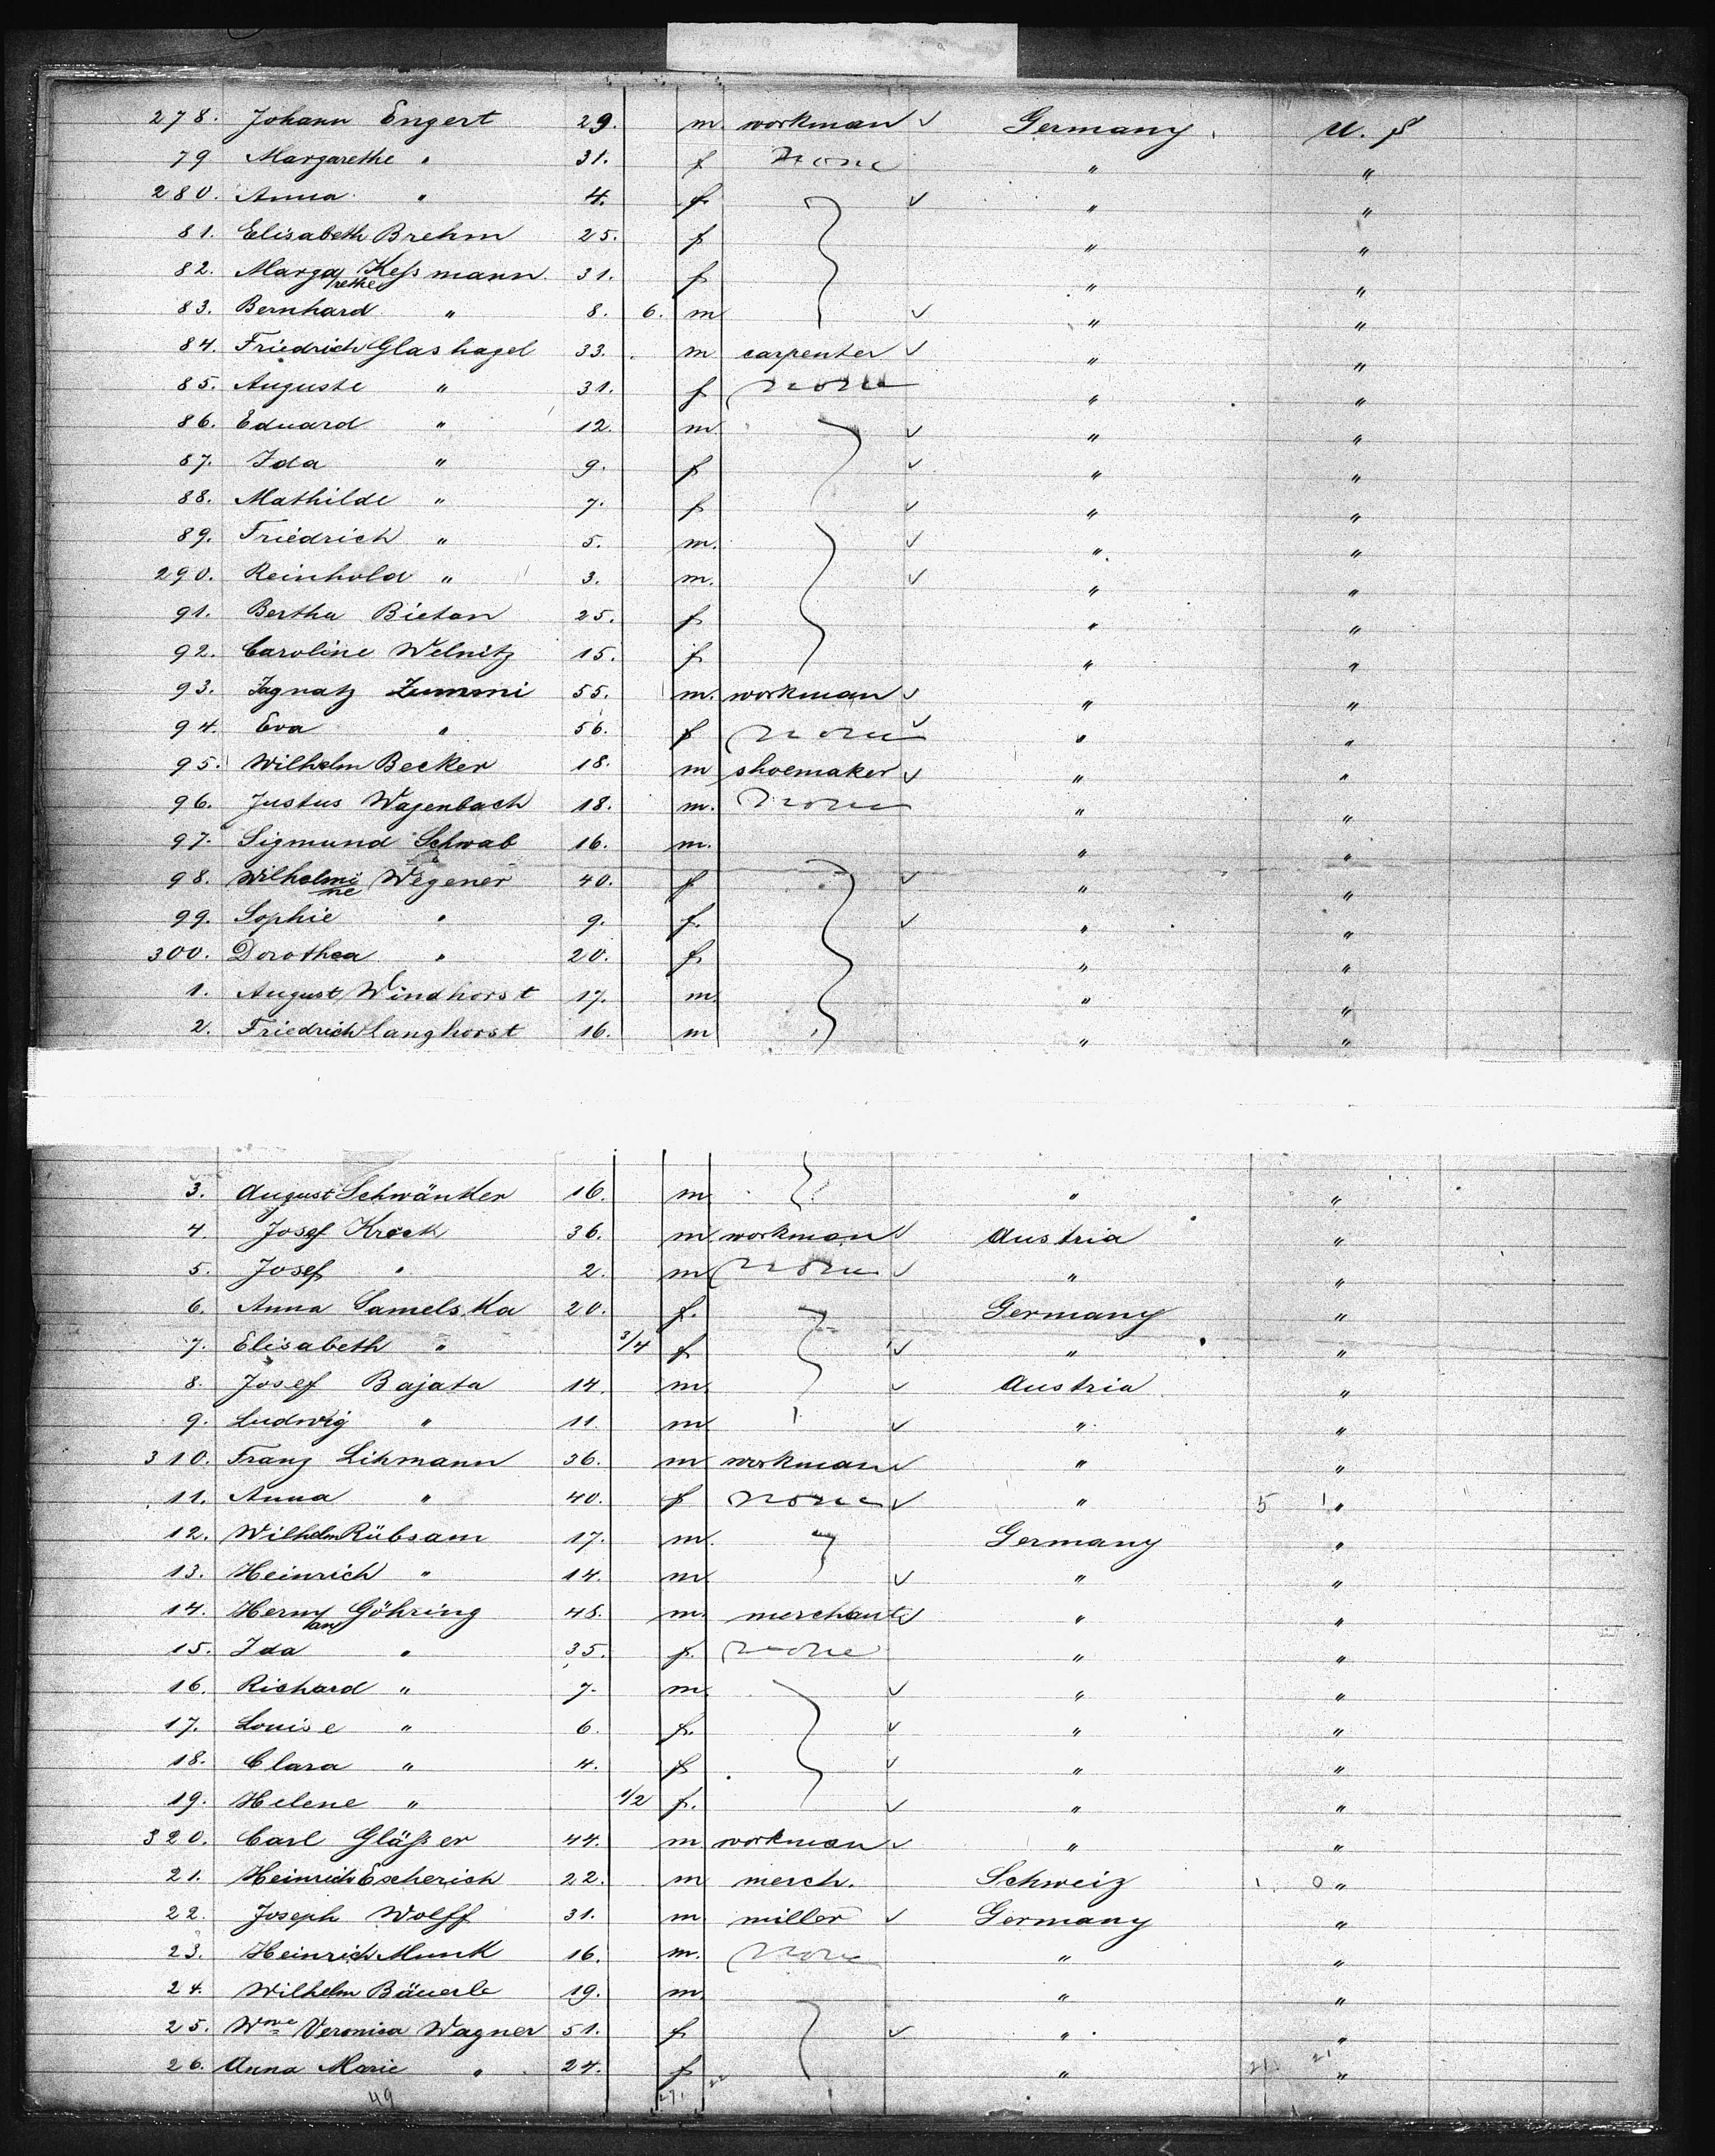 278. Johann Engert 29. m. workman ✓ Germany. U. S
79 Margarethe " 31. f none " "
280. Anna " 4. f. ✓ " "
81. Elisabeth Brehm 25. f " "
82. Margarethe Keſsmann. 31. f " "
83. Bernhard " 8. 6. m ✓ " "
84. Friedrich Glashagel 33. m carpenter ✓ " "
85. Auguste " 31. f none " "
86. Eduard " 12. m. ✓ " "
87. Ida " 9. f ✓ " "
88. Mathilde " 7. f ✓ " "
89. Friedrich " 5. m. ✓ " "
290. Reinhold " 3. m. ✓ " "
91. Bertha Bietan 25. f " "
92. Caroline Welnitz 15. f " "
93. Ignatz Zummi 55. m. workman ✓ " "
94. Eva " 56. f none ✓ " "
95. Wilhelm Becker 18. m shoemaker ✓ " "
96. Justus Wagenbach 18. m. none " "
97. Sigmund Schwab 16. m. " "
98. Wilhelmine Wegener 40. f ✓ " "
99. Sophie " 9. f. ✓ " "
300. Dorothea " 20. f " "
1. August Windhorst 17. m. " "
2. Friedrich Langhorst 16. m " "
3. August Schwänker 16. m " "
4. Josef Krock 36. m. workman ✓ Austria "
5. Josef " 2. m none ✓ " "
6. Anna Samelska 20. f. Germany "
7. Elisabeth " 3/4 f ✓ " "
8. Josef Bajata 14. m. ✓ Austria "
9. Ludwig " 11. m ✓ " "
310. Franz Lihmann 36. m workman ✓ " "
11. Anna " 40. f none ✓ " 5 1 "
12. Wilhelm Rübsam 17. m. Germany "
13. Heinrich " 14. m ✓ " "
14. Hermann Göhring 48. m. merchant ✓ " "
15. Ida " 35. f. none " "
16. Richard " 7. m. ✓ " "
17. Louise " 6. f. ✓ " "
18. Clara " 4. f ✓ " "
19. Helene " 1/2 f. ✓ " "
320. Carl Gläſser 44. m. workman ✓ " "
21. Heinrich Escherich 22. m merch. Schweiz 1 0 "
22. Joseph Wolff 31. m miller ✓ Germany "
23. Heinrich Munk 16. m. none " "
24. Wilhelm Bäuerle 19. m. " "
25. Wwe Veronica Wagner 51. f ✓ " "
26. Anna Marie " 24. f " 21 21 "
49 271 22